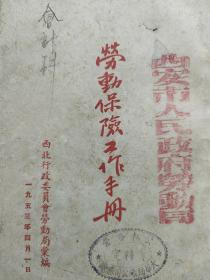 會計科
西安市人民政府勞動局
勞動保險工作手冊
西北行政委員會勞動局彙編
一九五三年四月一日